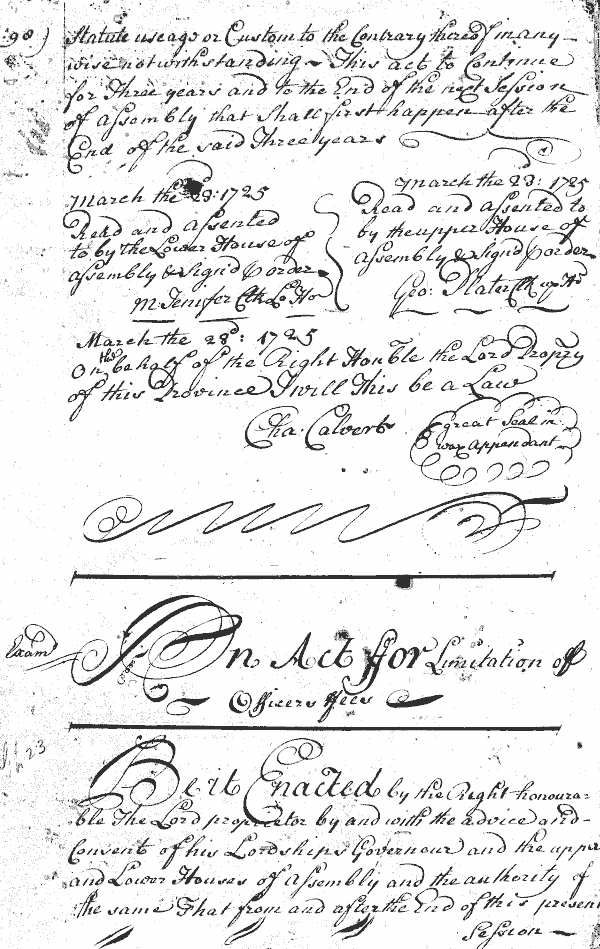 98)
Statute useage or Custom to the Contrary thereof in any-
wise notwithstanding ~ This act to Continue
for Three years and to the End of the next Session
of assembly that Shall first happen after the
End of the said Three years
March the 23: 1725
Read and assented
to by the Lower House of
assembly & Signd p order
M Jenifer Clk Lo: Ho
March the 23: 1725
Read and assented to
by the upper House of
assembly & Signd p order
Geo: Plater Clk up Ho
March the 23d: 1725
On the behalf of the Right Honble the Lord Proppry
of this Province I will This be a Law
Cha: Calvert
great Seal in
wax appendant
Exam
An Act for Limitation of
Officers ffees
23
Be it Enacted by the Right honoura-
ble The Lord proprietor by and with the advice and-
Consent of his Lordships Governour and the upper
and Lower Houses of Assembly and the authority of
the same That from and after the End of this present
Session